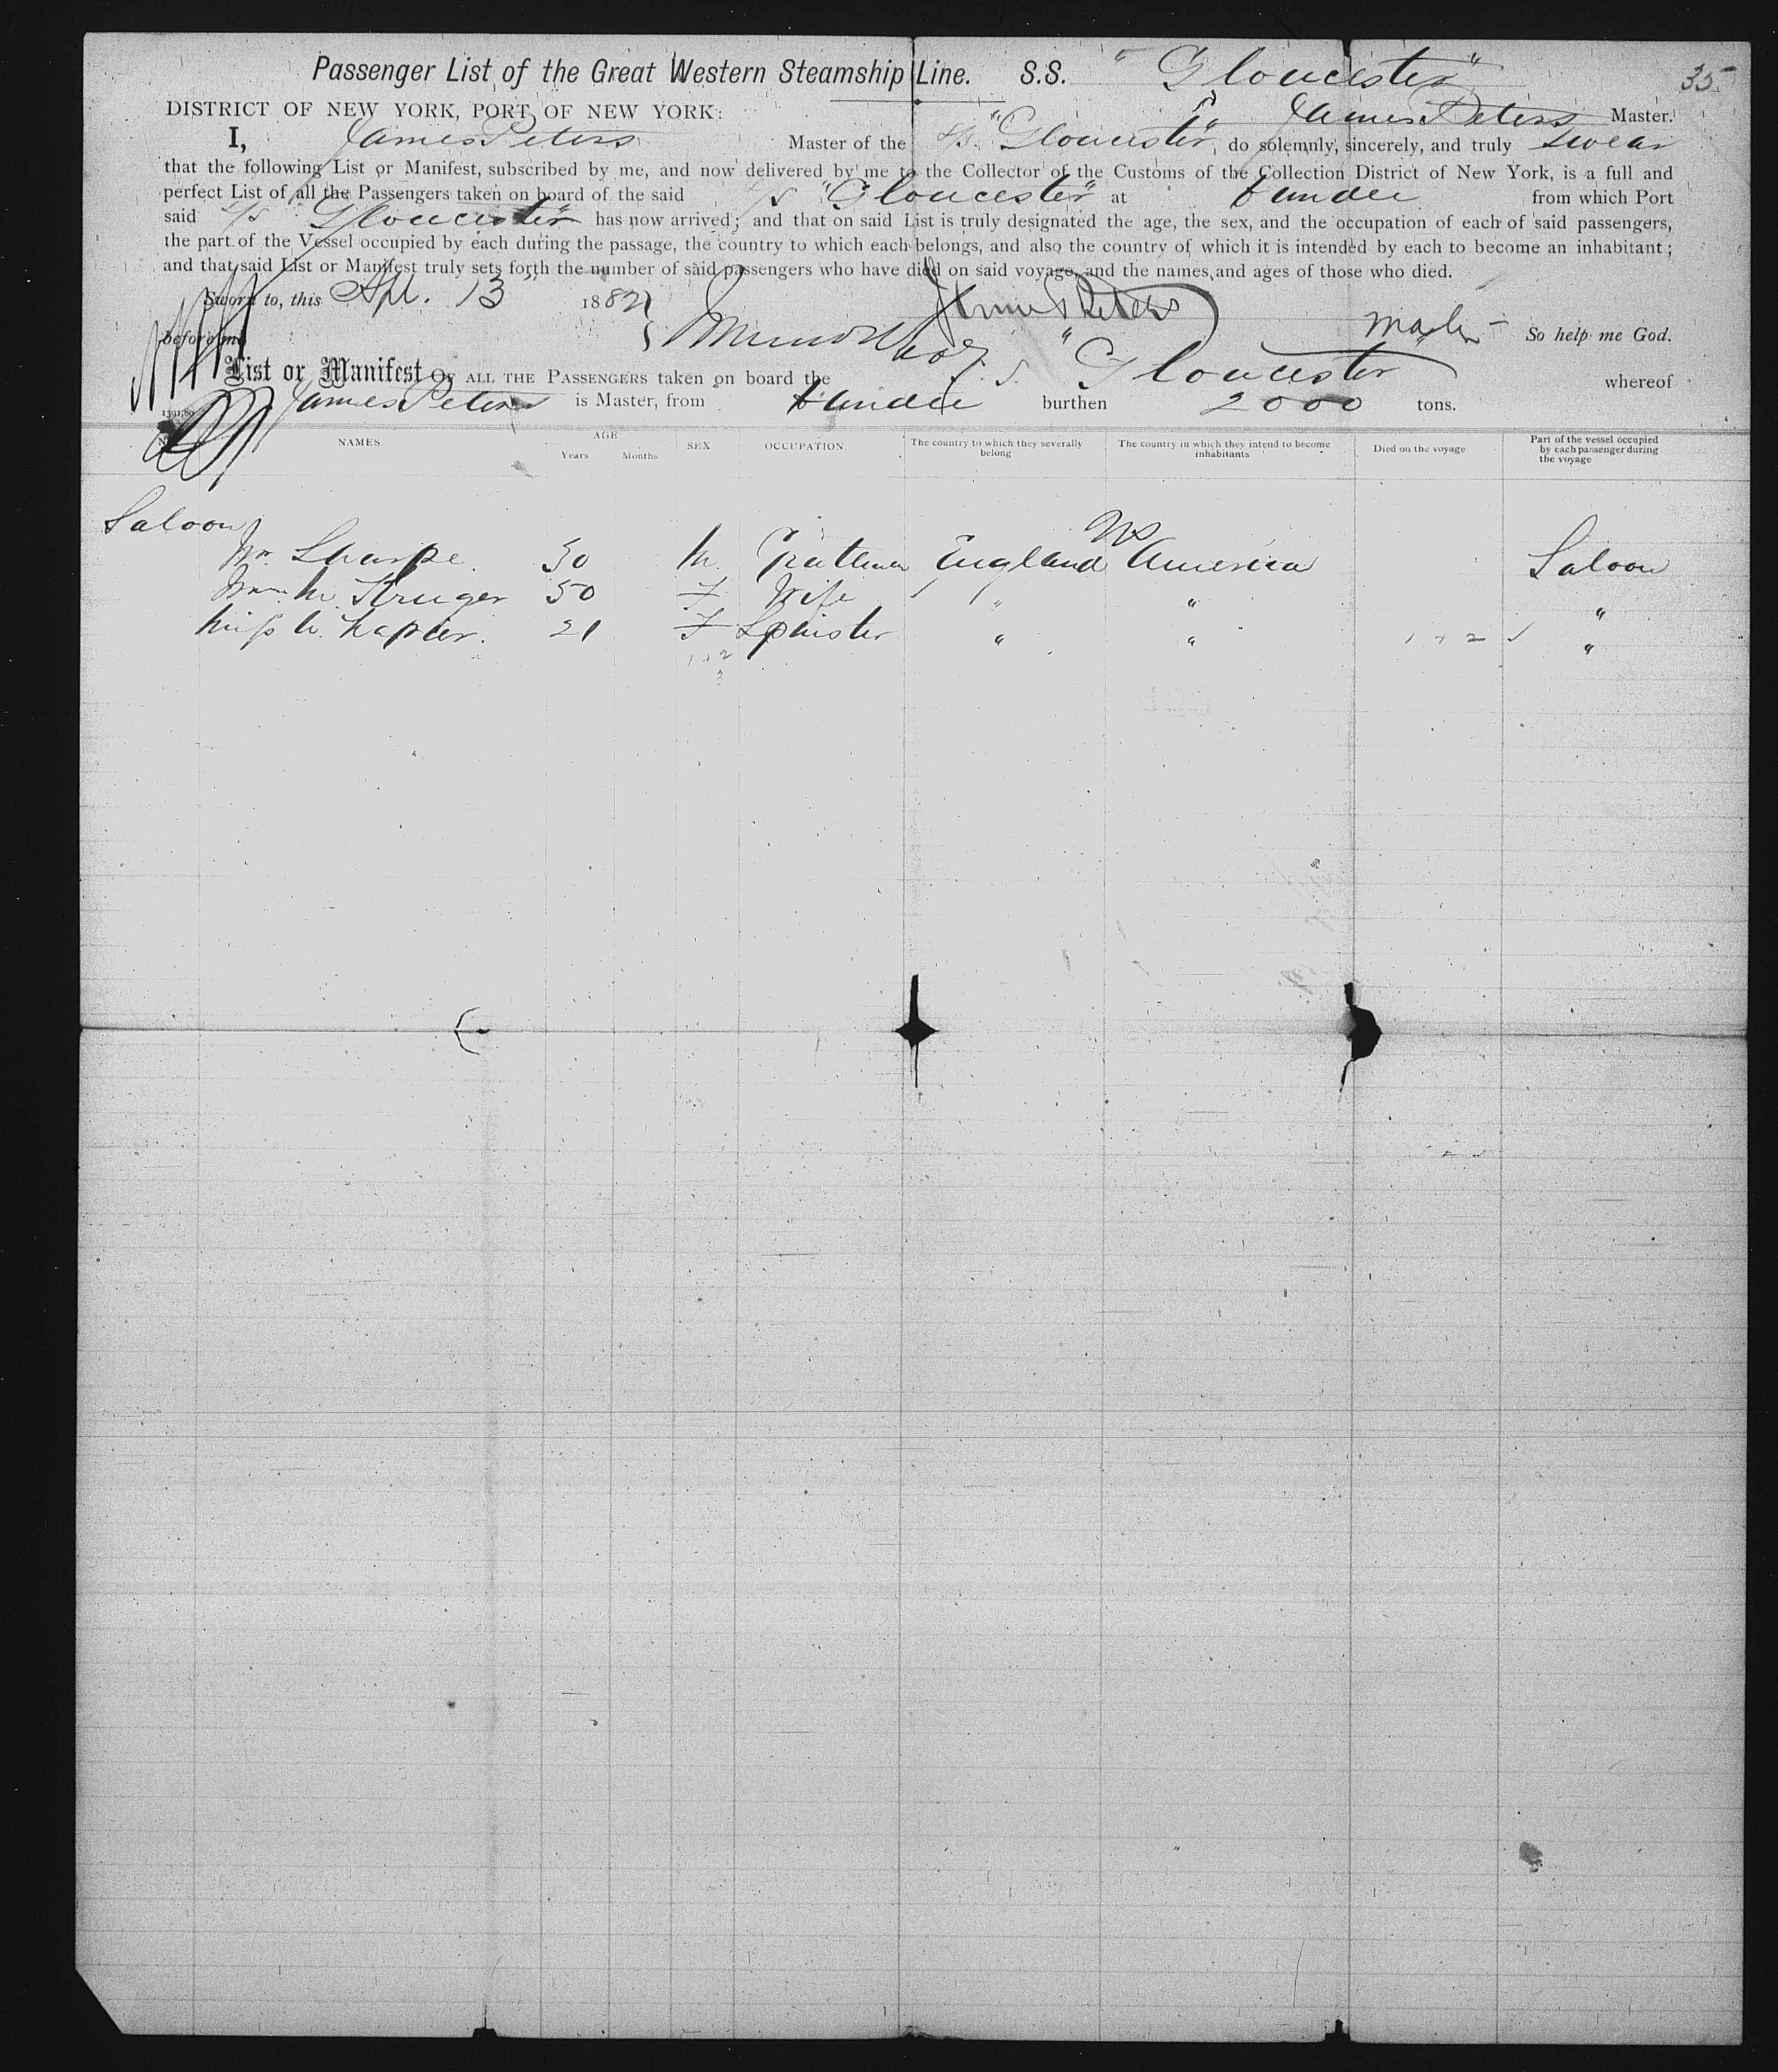 Passenger List of the Great Western Steamship Line. S.S. "Gloucester" 35
DISTRICT OF NEW YORK, PORT OF NEW YORK: James Peters Master.
I, James Peters Master of the S/S. "Gloucester", do solemnly, sincerely, and truly swear
that the following List or Manifest, subscribed by me, and now delivered by me to the Collector of the Customs of the Collection District of New York, is a full and
perfect List of all the Passengers taken on board of the said S/S "Gloucester" at Dundee from which Port
said S/S "Gloucester" has now arrived; and that on said List is truly designated the age, the sex, and the occupation of each of said passengers,
the part of the Vessel occupied by each during the passage, the country to which each belongs, and also the country of which it is intended by each to become an inhabitant;
and that said List or Manifest truly sets forth the number of said passengers who have died on said voyage, and the names and ages of those who died.
Sworn to, this Apl. 13 1882 James Peters
before me Master So help me God.
List or Manifest OF ALL THE PASSENGERS taken on board the S.S. "Gloucester" whereof
James Peters is Master, from Dundee burthen 2000 tons.
NAMES AGE Years Months SEX OCCUPATION. The country to which they severally belong The country in which they intend to become inhabitants Died on the voyage Part of the vessel occupied by each passenger during the voyage
Saloon
Mr. Sharpe. 30 M. Gentleman England America Saloon
M. Kruger 50 F Wife " " "
Miss M. Napier. 21 F Spinster " " "